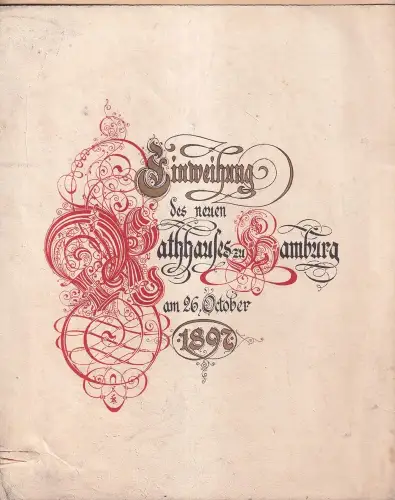 Einweihung
des neuen
Rathhauses zu Hamburg
am 26. October
1897.